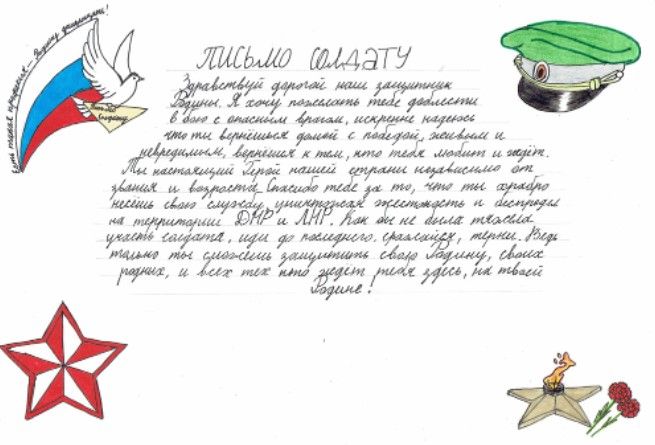 Есть такая профессия... Родину защищать!
Письмо солдату
ПИСЬМО СОЛДАТУ
Здравствуй дорогой наш защитник
Родины. Я хочу пожелать тебе доблести
в бою с опасным врагом, искренне надеюсь
что ты вернёшься домой с победой, живым и
невредимым, вернёшся к тем, кто тебя любит и ждёт.
Ты настоящий Герой нашей страны независимо от
звания и возраста. Спасибо тебе за то, что ты храбро
несёшь свою службу, уничтожая жестокость и беспредел
на территории ДНР и ЛНР. Как бы не была тяжела
участь солдата, иди до последнего, сражайся, терпи. Ведь
только ты сможешь защитить свою Родину, своих
родных, и всех тех кто ждет тебя здесь, на твоей
Родине!